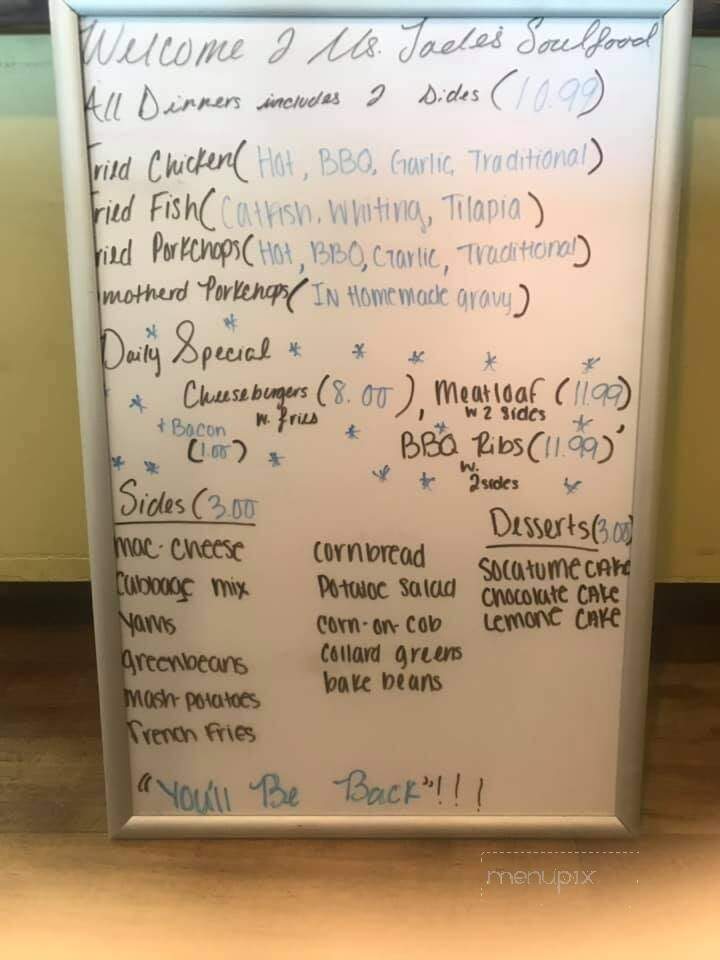 Welcome 2 Ms. Jade's Soulfood
All Dinners includes 2 Sides (10.99)
Fried Chicken( Hot, BBQ, Garlic, Traditional)
Fried Fish( Catfish, Whiting, Tilapia )
Fried Porkchops( Hot, BBQ, Garlic, Traditional)
Smotherd Porkchops( IN Homemade gravy)
Daily Special
Cheeseburgers (8.00), Meatloaf (11.99)
w. fries
w 2 sides
+ Bacon
(1.00)
BBQ Ribs (11.99)
w.
2 sides
Sides (3.00
mac-cheese
Cabbage mix
Yams
greenbeans
mash-potatoes
French Fries
cornbread
Potatoe Salad
corn-on-cob
collard greens
bake beans
Desserts (3.00)
Socatume CAKE
chocolate CAKE
Lemone CAKE
"You'll Be Back"!!!
menupix